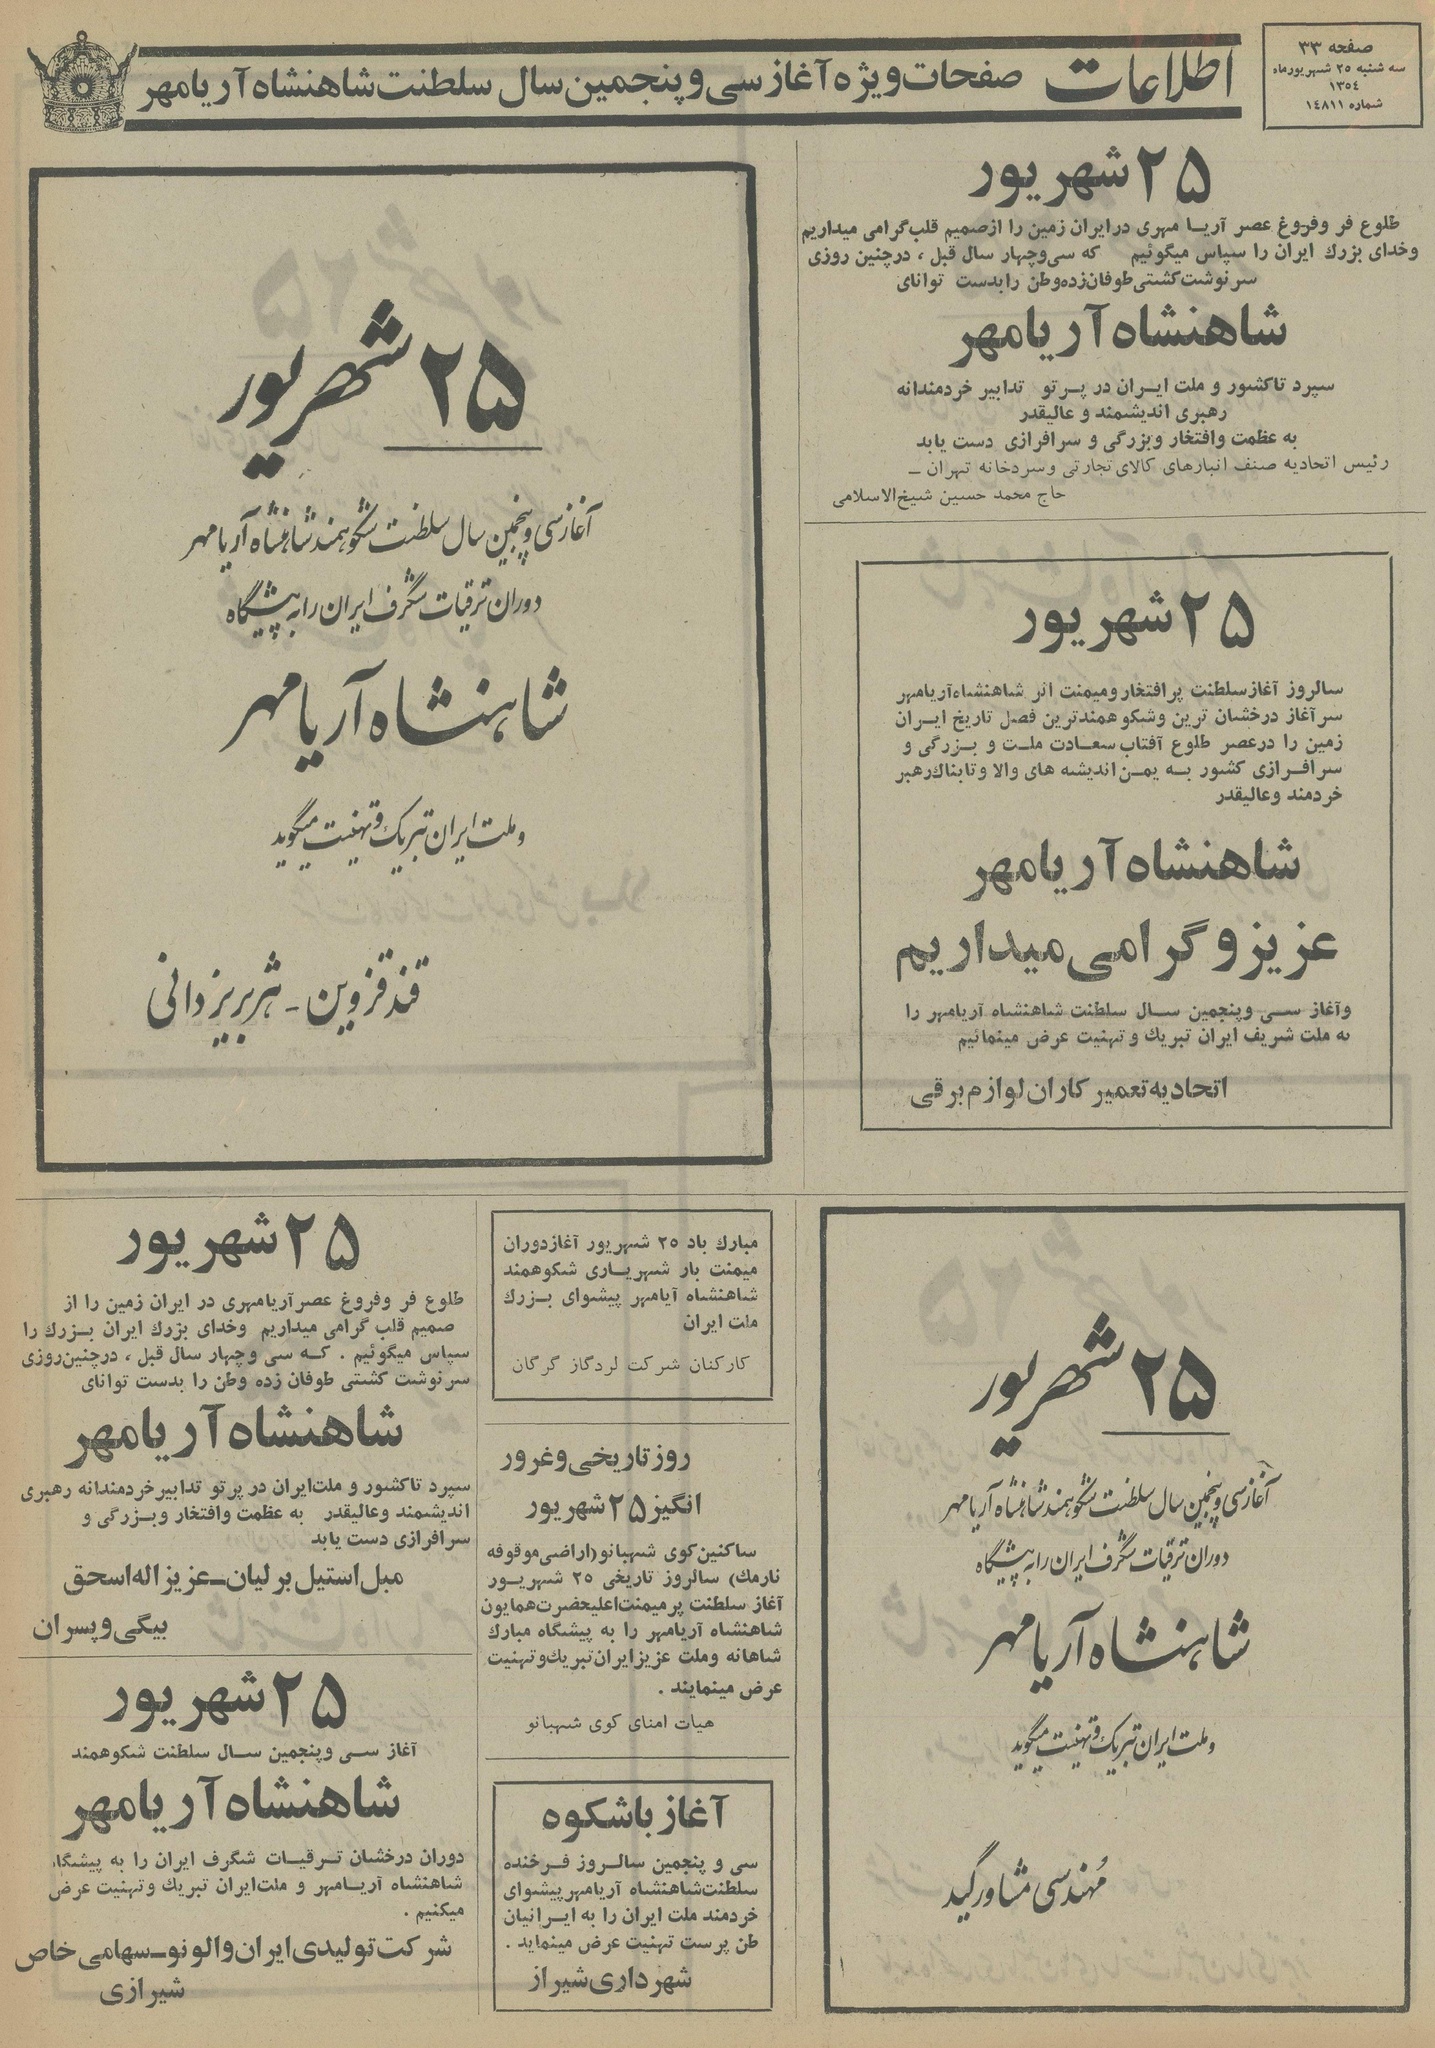 صفحه ۳۳
سه شنبه ۲۵ شهریورماه
۱۳۵۴
شماره ۱۴۸۱۱
اطلاعات
صفحات ویژه آغاز سی و پنجمین سال سلطنت شاهنشاه آریامهر
۲۵ شهریور
طلوع فر وفروغ عصر آریا مهری در ایران زمین را از صمیم قلب گرامی میداریم
وخدای بزرك ایران را سپاس میگوئیم که سی وچهار سال قبل ، درچنین روزی
سرنوشت کشتی طوفان زده وطن را بدست توانای
شاهنشاه آریامهر
سپرد تاکشور و ملت ایران در پرتو تدابیر خردمندانه
رهبری اندیشمند و عالیقدر
به عظمت وافتخار وبزرگی و سرافرازی دست یابد
رئیس اتحادیه صنف انبارهای کالای تجارتی وسردخانه تهران –
حاج محمد حسین شیخ الاسلامی
۲۵ شهریور
سالروز آغاز سلطنت پرافتخار ومیمنت اثر شاهنشاه آریامهر
سرآغاز درخشان ترین وشکوهمندترین فصل تاریخ ایران
زمین را درعصر طلوع آفتاب سعادت ملت و بزرگی و
سرافرازی کشور به یمن اندیشه های والا وتابناك رهبر
خردمند وعالیقدر
شاهنشاه آریامهر
عزیز و گرامی میداریم
وآغاز سی وپنجمین سال سلطنت شاهنشاه آریامهر را
به ملت شریف ایران تبریك و تهنیت عرض مینمائیم
اتحادیه تعمیرکاران لوازم برقی
۲۵ شهریور
آغاز سی و پنجمین سال سلطنت شکوهمند شاهنشاه آریامهر
دوران ترقیات شگرف ایران را به پیشگاه
شاهنشاه آریامهر
و ملت ایران تبریک و تهنیت میگوید
قند قزوین - هژبر یزدانی
۲۵ شهریور
آغاز سی و پنجمین سال سلطنت شکوهمند شاهنشاه آریامهر
دوران ترقیات شگرف ایران را به پیشگاه
شاهنشاه آریامهر
و ملت ایران تبریک و تهنیت میگوید
مهندسی مشاور گید
مبارك باد ۲۵ شهریور آغاز دوران
میمنت بار شهریاری شکوهمند
شاهنشاه آیامهر پیشوای بزرك
ملت ایران
کارکنان شرکت لردگاز گرگان
روز تاریخی وغرور
انگیز ۲۵ شهریور
ساکنین کوی شهبانو (اراضی موقوفه
نارمك) سالروز تاریخی ۲۵ شهریور
آغاز سلطنت پر میمنت اعلیحضرت همایون
شاهنشاه آریامهر را به پیشگاه مبارك
شاهانه وملت عزیز ایران تبریك و تهنیت
عرض مینمایند .
هیات امنای کوی شهبانو
آغاز باشکوه
سی و پنجمین سالروز فرخنده
سلطنت شاهنشاه آریامهر پیشوای
خردمند ملت ایران را به ایرانیان
طن پرست تهنیت عرض مینماید .
شهرداری شیراز
۲۵ شهریور
طلوع فر وفروغ عصر آریامهری در ایران زمین را از
صمیم قلب گرامی میداریم وخدای بزرك ایران بزرك را
سپاس میگوئیم . که سی وچهار سال قبل ، درچنین روزی
سرنوشت کشتی طوفان زده وطن را بدست توانای
شاهنشاه آریامهر
سپرد تاکشور و ملت ایران در پرتو تدابیر خردمندانه رهبری
اندیشمند وعالیقدر به عظمت وافتخار وبزرگی و
سرافرازی دست یابد
مبل استیل برلیان – عزیزاله اسحق
بیگی و پسران
۲۵ شهریور
آغاز سی وپنجمین سال سلطنت شکوهمند
شاهنشاه آریامهر
دوران درخشان ترقیات شگرف ایران را به پیشگاه
شاهنشاه آریامهر و ملت ایران تبریك وتهنیت عرض
میکنیم .
شرکت تولیدی ایران والونو – سهامی خاص
شیرازی